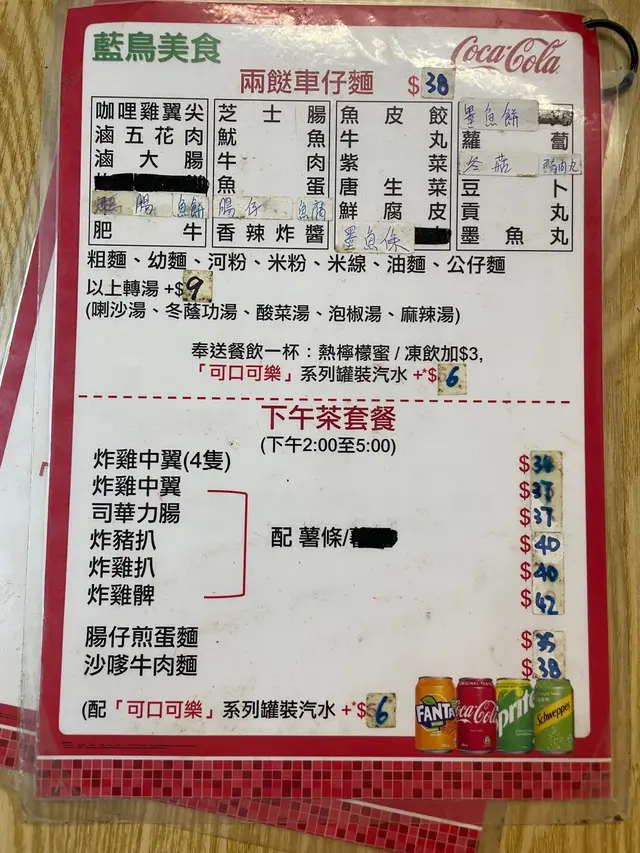 藍鳥美食
Coca-Cola
兩餸車仔麵 $38
咖喱雞翼尖
滷五花肉
滷大腸
腸 魚餅
肥牛
芝士腸
魷魚
牛肉
魚蛋
腸仔 魚腐
香辣炸醬
魚皮餃
牛丸
紫菜
唐生菜
鮮腐皮
墨魚條
墨魚餅
蘿蔔
冬菇
豆卜
貢丸
墨魚丸
粗麵、幼麵、河粉、米粉、米線、油麵、公仔麵
以上轉湯 +$9
(喇沙湯、冬蔭功湯、酸菜湯、泡椒湯、麻辣湯)
奉送餐飲一杯：熱檸檬蜜 / 凍飲加$3,
「可口可樂」系列罐裝汽水 +*$6
下午茶套餐
(下午2:00至5:00)
炸雞中翼(4隻) $34
炸雞中翼 $37
司華力腸 $37
炸豬扒 配 薯條/ $40
炸雞扒 $40
炸雞髀 $42
腸仔煎蛋麵 $35
沙嗲牛肉麵 $38
(配「可口可樂」系列罐裝汽水 +*$6
FANTA
Coca-Cola
Sprite
Schweppes